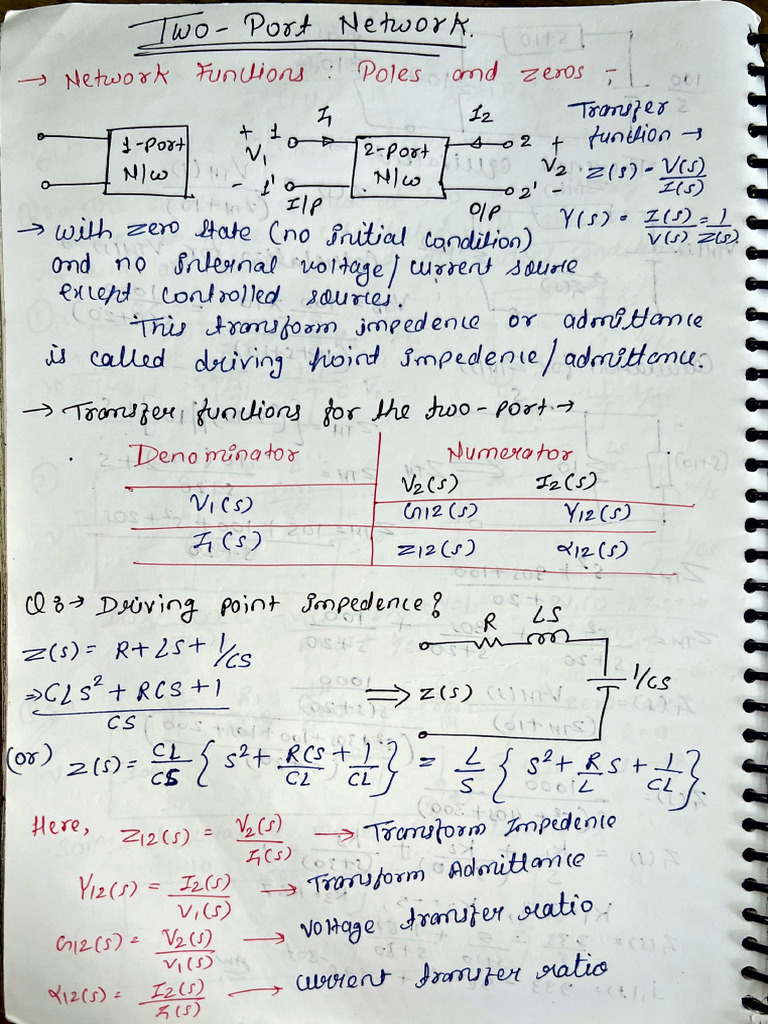 Two-Port Network.
→ Network Functions : Poles and zeros -
1-port N/w
+ 1 I1 I2 2 +
V1 2-port N/w V2
- 1' I/P O/P 2' -
Transfer function →
Z(s) = V(s)/I(s)
Y(s) = I(s)/V(s) = 1/Z(s).
→ with zero state (no initial condition)
and no internal voltage/current source
except controlled sources.
This transform impedence or admittance
is called driving point impedence/admittance.
→ Transfer functions for the two-port →
Denominator Numerator
V2(s) I2(s)
V1(s) G12(s) Y12(s)
I1(s) Z12(s) α12(s)
Q:→ Driving point impedence?
R LS
1/CS
Z(s) = R + LS + 1/CS
⇒ CLS² + RCS + 1 / CS
⇒ Z(s)
(or) Z(s) = CL/CS { S² + RCS/CL + 1/CL } = L/S { S² + R/L S + 1/CL }.
Here, Z12(s) = V2(s)/I1(s) → Transform Impedence
Y12(s) = I2(s)/V1(s) → Transform Admittance
G12(s) = V2(s)/V1(s) → voltage transfer ratio
α12(s) = I2(s)/I1(s) → current transfer ratio